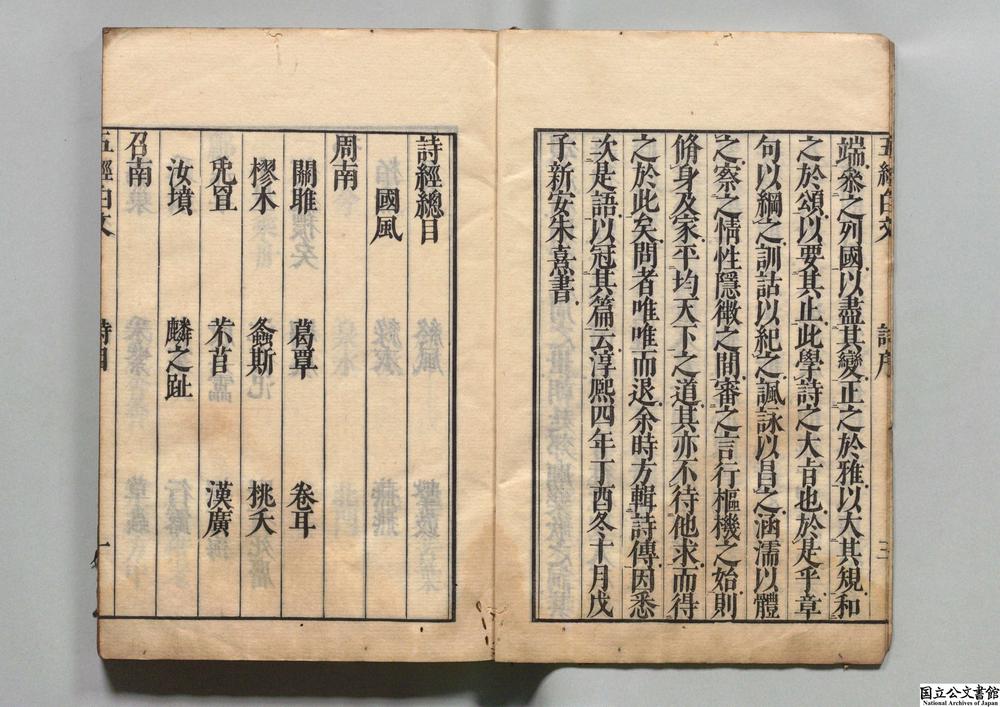 五經白文 詩序 三
端參之列國以盡其變正之於雅以大其規和
之於頌以要其止此學詩之大旨也於是乎章
句以綱之訓詁以紀之諷詠以昌之涵濡以體
之察之情性隱微之間審之言行樞機之始則
脩身及家平均天下之道其亦不待他求而得
之於此矣問者唯唯而退余時方輯詩傳因悉
次是語以冠其篇云淳熙四年丁酉冬十月戊
子新安朱熹書
詩經總目
國風
周南
關雎 葛覃 卷耳
樛木 螽斯 桃夭
兎罝 芣苢 漢廣
汝墳 麟之趾
召南
五經白文 詩目 一
国立公文書館
National Archives of Japan